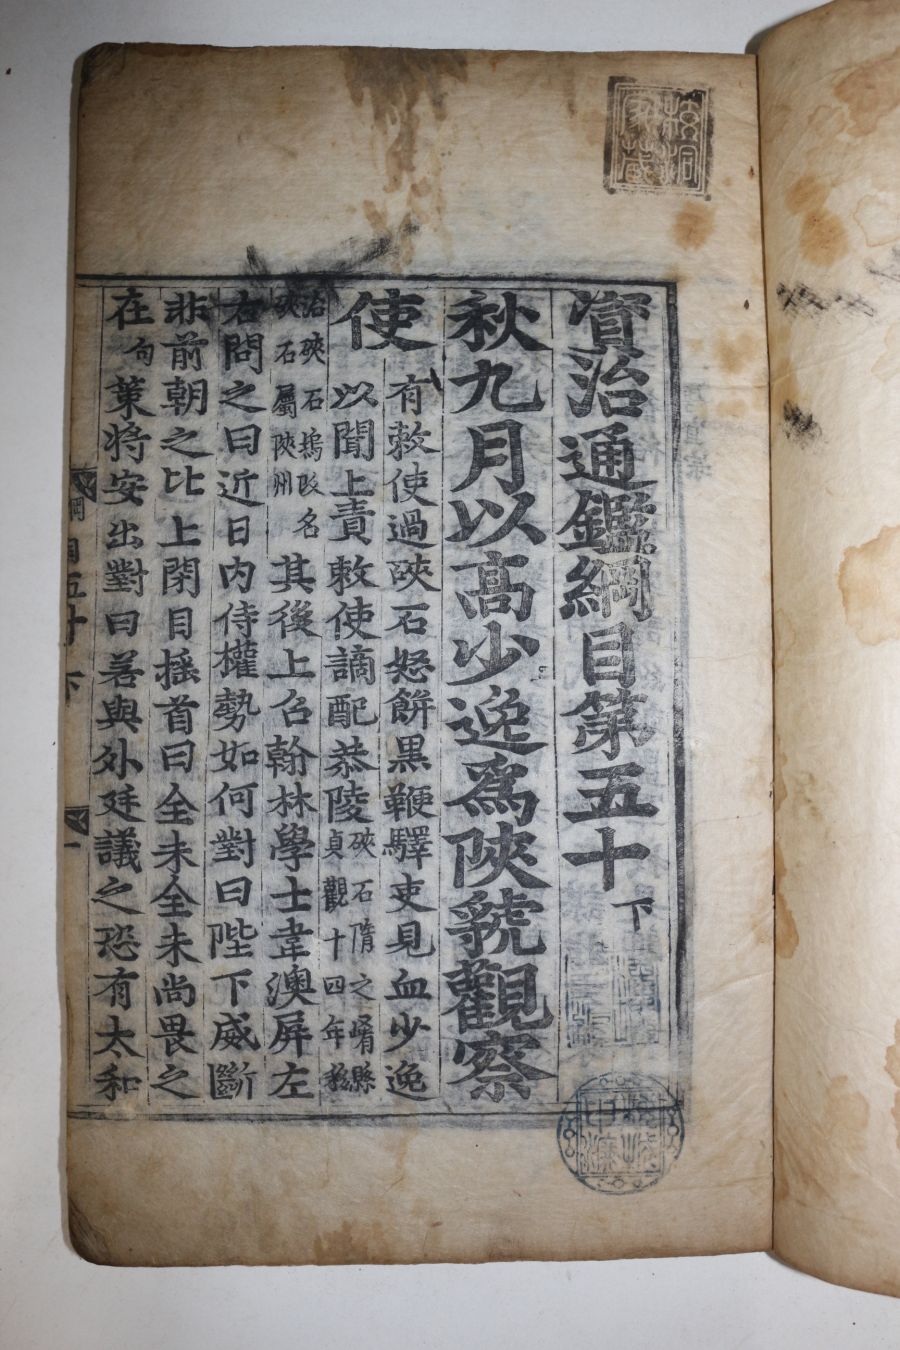 資治通鑑綱目第五十下
秋九月以高少逸爲陝虢觀察
使
有敕使過硤石怒餠黒鞭驛吏見血少逸
以聞上責敕使謫配恭陵硤石隋之崤縣
貞觀十四年移
治硤石塢改名
硤石屬陝州其後上召翰林學士韋澳屏左
右問之曰近日內侍權勢如何對曰陛下威斷
非前朝之比上閉目揺首曰全未全未尚畏之
在句䇿將安出對曰若與外廷議之恐有太和
綱目五十下
家藏